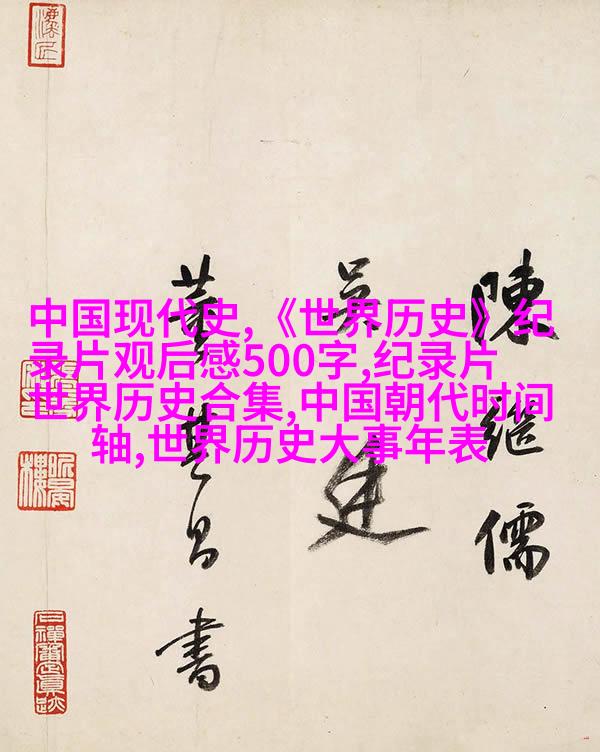 中国现代史,《世界历史》纪
录片观后感500字,纪录片
世界历史合集,中国朝代时间
轴,世界历史大事年表
陳继儒
吴廷
董其昌書